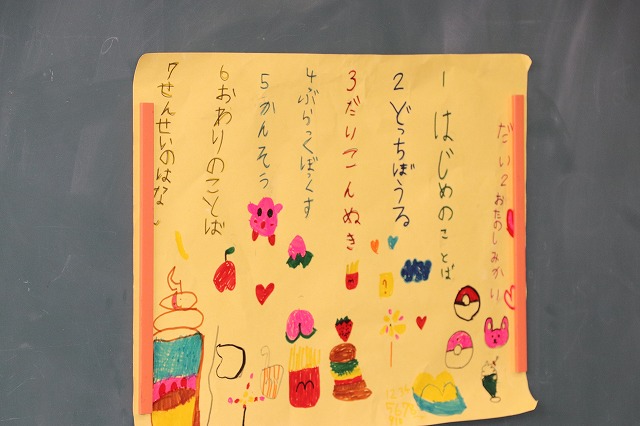 だい2おたのしみかい
1はじめのことば
2どっちぼうる
3だりこんぬき
4ぶらっくぼっくす
5かんそう
6おわりのことば
7せんせいのはな